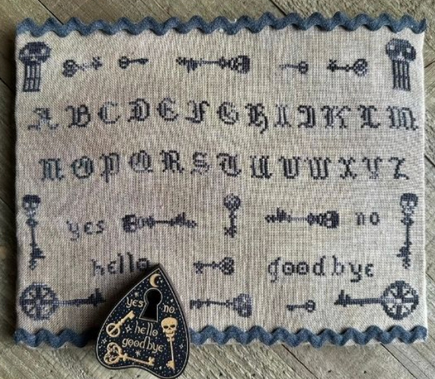 A B C D E F G H I J K L M
N O P Q R S T U V W X Y Z
yes no
hello goodbye
yes no
hello
goodbye